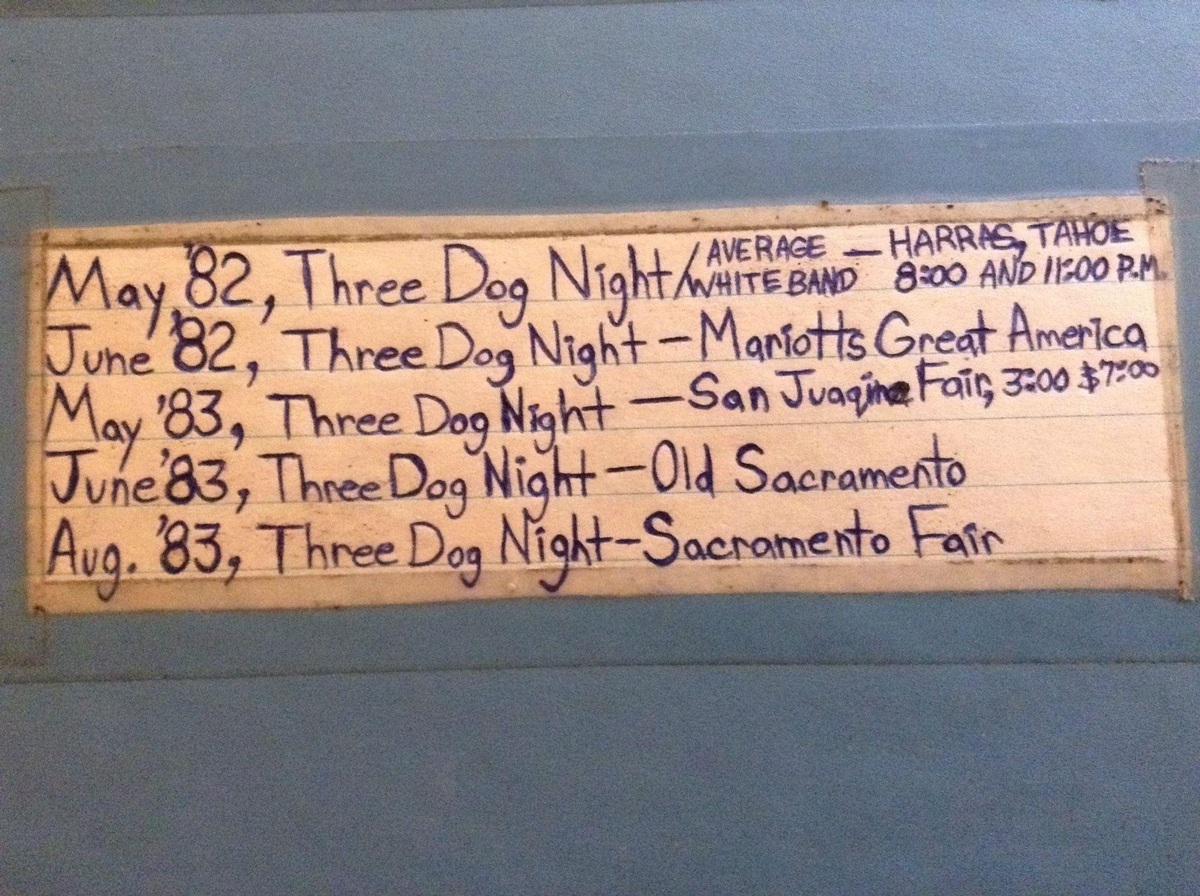 May '82, Three Dog Night/AVERAGE WHITE BAND — HARRAS, TAHOE 8:00 AND 11:00 P.M.
June '82, Three Dog Night - Mariotts Great America
May '83, Three Dog Night - San Juaqine Fair, 3:00 $7:00
June '83, Three Dog Night - Old Sacramento
Aug. '83, Three Dog Night - Sacramento Fair